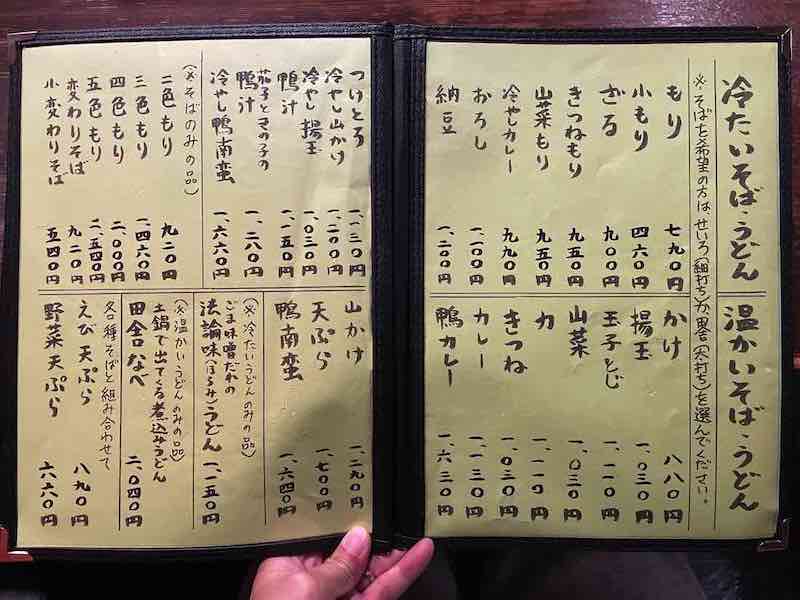 冷たいそば・うどん
※そばを希望の方は せいろ(細打ち)か田舎(太打ち)を選んでください。
もり 七九〇円
小もり 四六〇円
ざる 九二〇円
きつねもり 九五〇円
山菜もり 九五〇円
冷やしカレー 九九〇円
おろし 一、一〇〇円
納豆 一、二〇〇円
温かいそば・うどん
かけ 八八〇円
揚玉 一、〇三〇円
玉子とじ 一、一一〇円
山菜 一、〇三〇円
力 一、一一〇円
きつね 一、〇三〇円
カレー 一、一三〇円
鴨カレー 一、六三〇円
つけとろ 一、一三〇円
冷やし山かけ 一、二〇〇円
冷やし揚玉 一、〇三〇円
鴨汁 一、一五〇円
茄子ときの子の
鴨汁 一、二八〇円
冷やし鴨南蛮 一、六六〇円
(※そばのみの品)
二色もり 九二〇円
三色もり 一、四六〇円
四色もり 二、〇〇〇円
五色もり 二、五四〇円
変わりそば 九二〇円
小変わりそば 五四〇円
山かけ 一、二九〇円
天ぷら 一、七〇〇円
鴨南蛮 一、六四〇円
(※冷たいうどんのみの品)
ごま味噌だれの
法論味(ほろみ)うどん 一、一五〇円
(※温かいうどんのみの品)
土鍋で出てくる煮込みうどん
田舎なべ 二、〇四〇円
各種そばと組み合わせて
えび天ぷら 八九〇円
野菜天ぷら 六六〇円